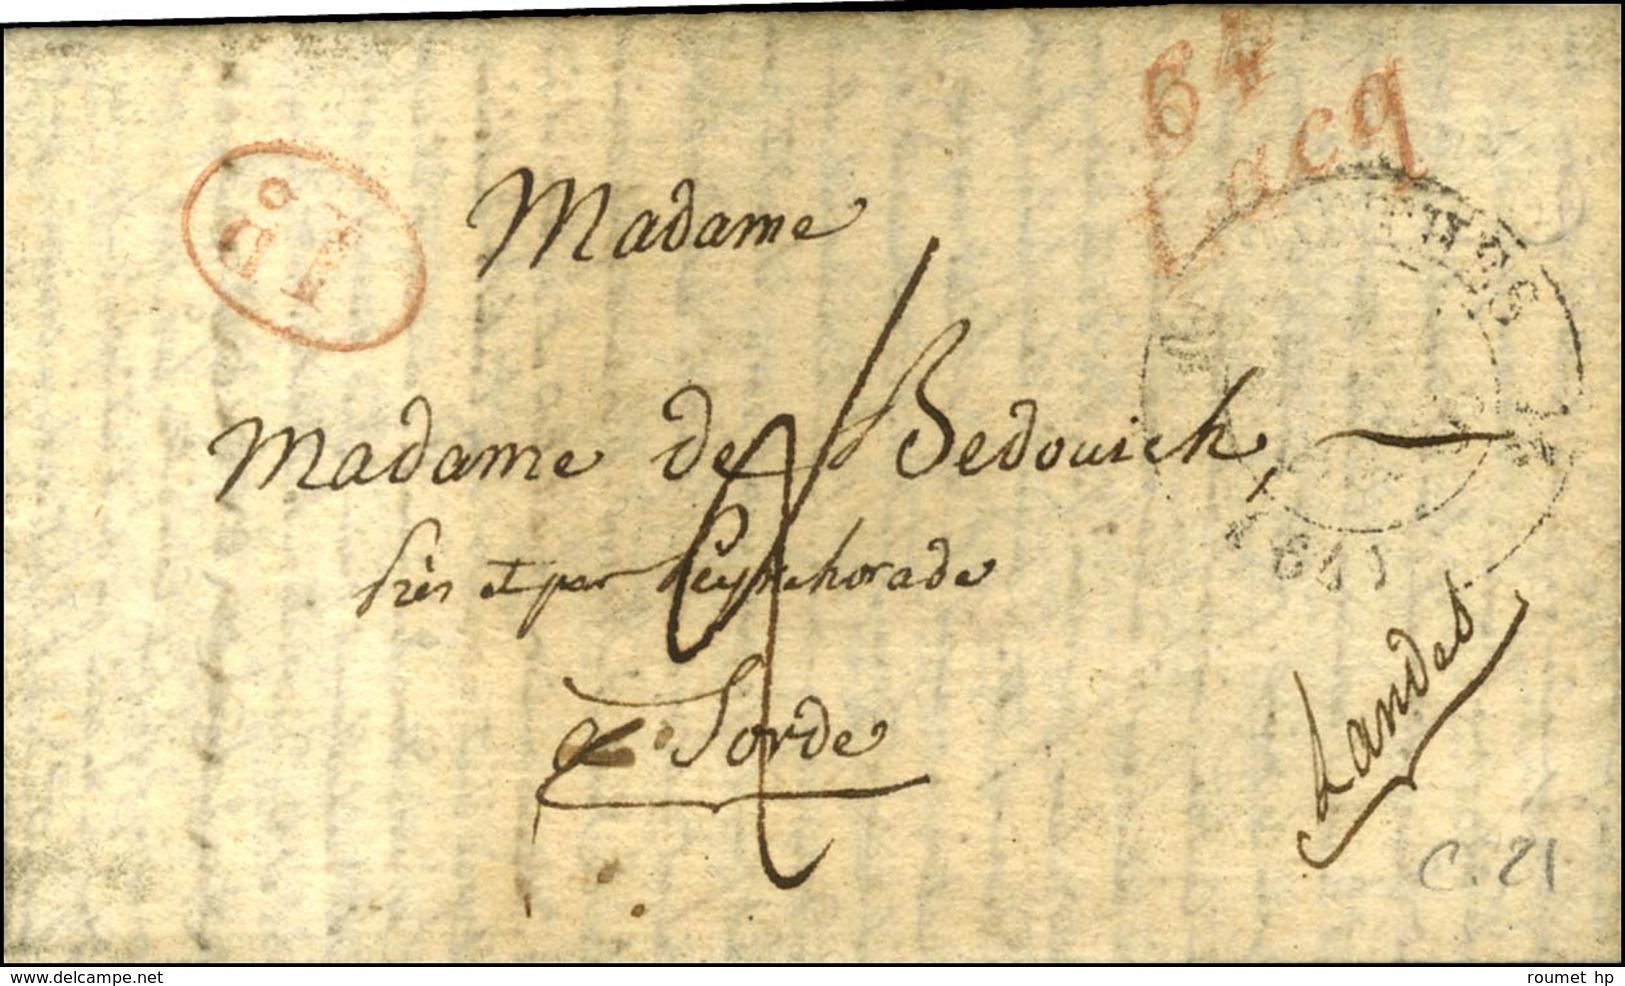 64
Lacq
Madame
Madame de Bedouich,
près et par Peyrehorade
à Sorde
Landes
C. 21
delcampe.net
roumet hp